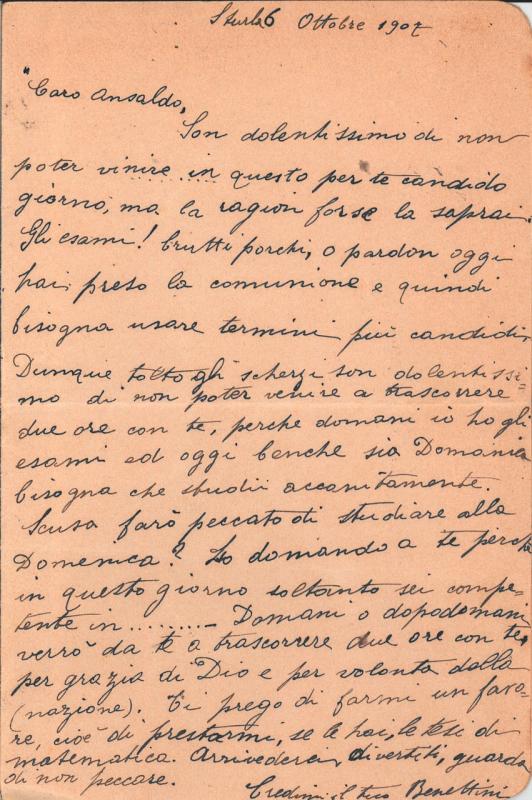 Sturla 6 Ottobre 1907
"Caro Ansaldo,
Son dolentissimo di non
poter vinire in questo per te candido
giorno, ma la ragion forse la saprai.
Gli esami! brutti porchi, o pardon oggi
hai preso la comunione e quindi
bisogna usare termini più candidi.
Dunque tolto gli scherzi son dolentissi-
mo di non poter venire a trascorrere
due ore con te, perche domani io ho gli
esami ed oggi benche sia Domenica
bisogna che studii accanitamente.
Scusa farò peccato di studiare alla
Domenica? Lo domando a te perchè
in questo giorno soltanto sei compe-
tente in ......... - Domani o dopodomani
verrò da te a trascorrere due ore con te,
per grazia di Dio e per volonta della
(nazione). Ti prego di farmi un favo-
re, cioè di prestarmi, se le hai, le tesi di
matematica. Arrivederci, divertiti, guarda
di non peccare.
Credimi il tuo Benettini